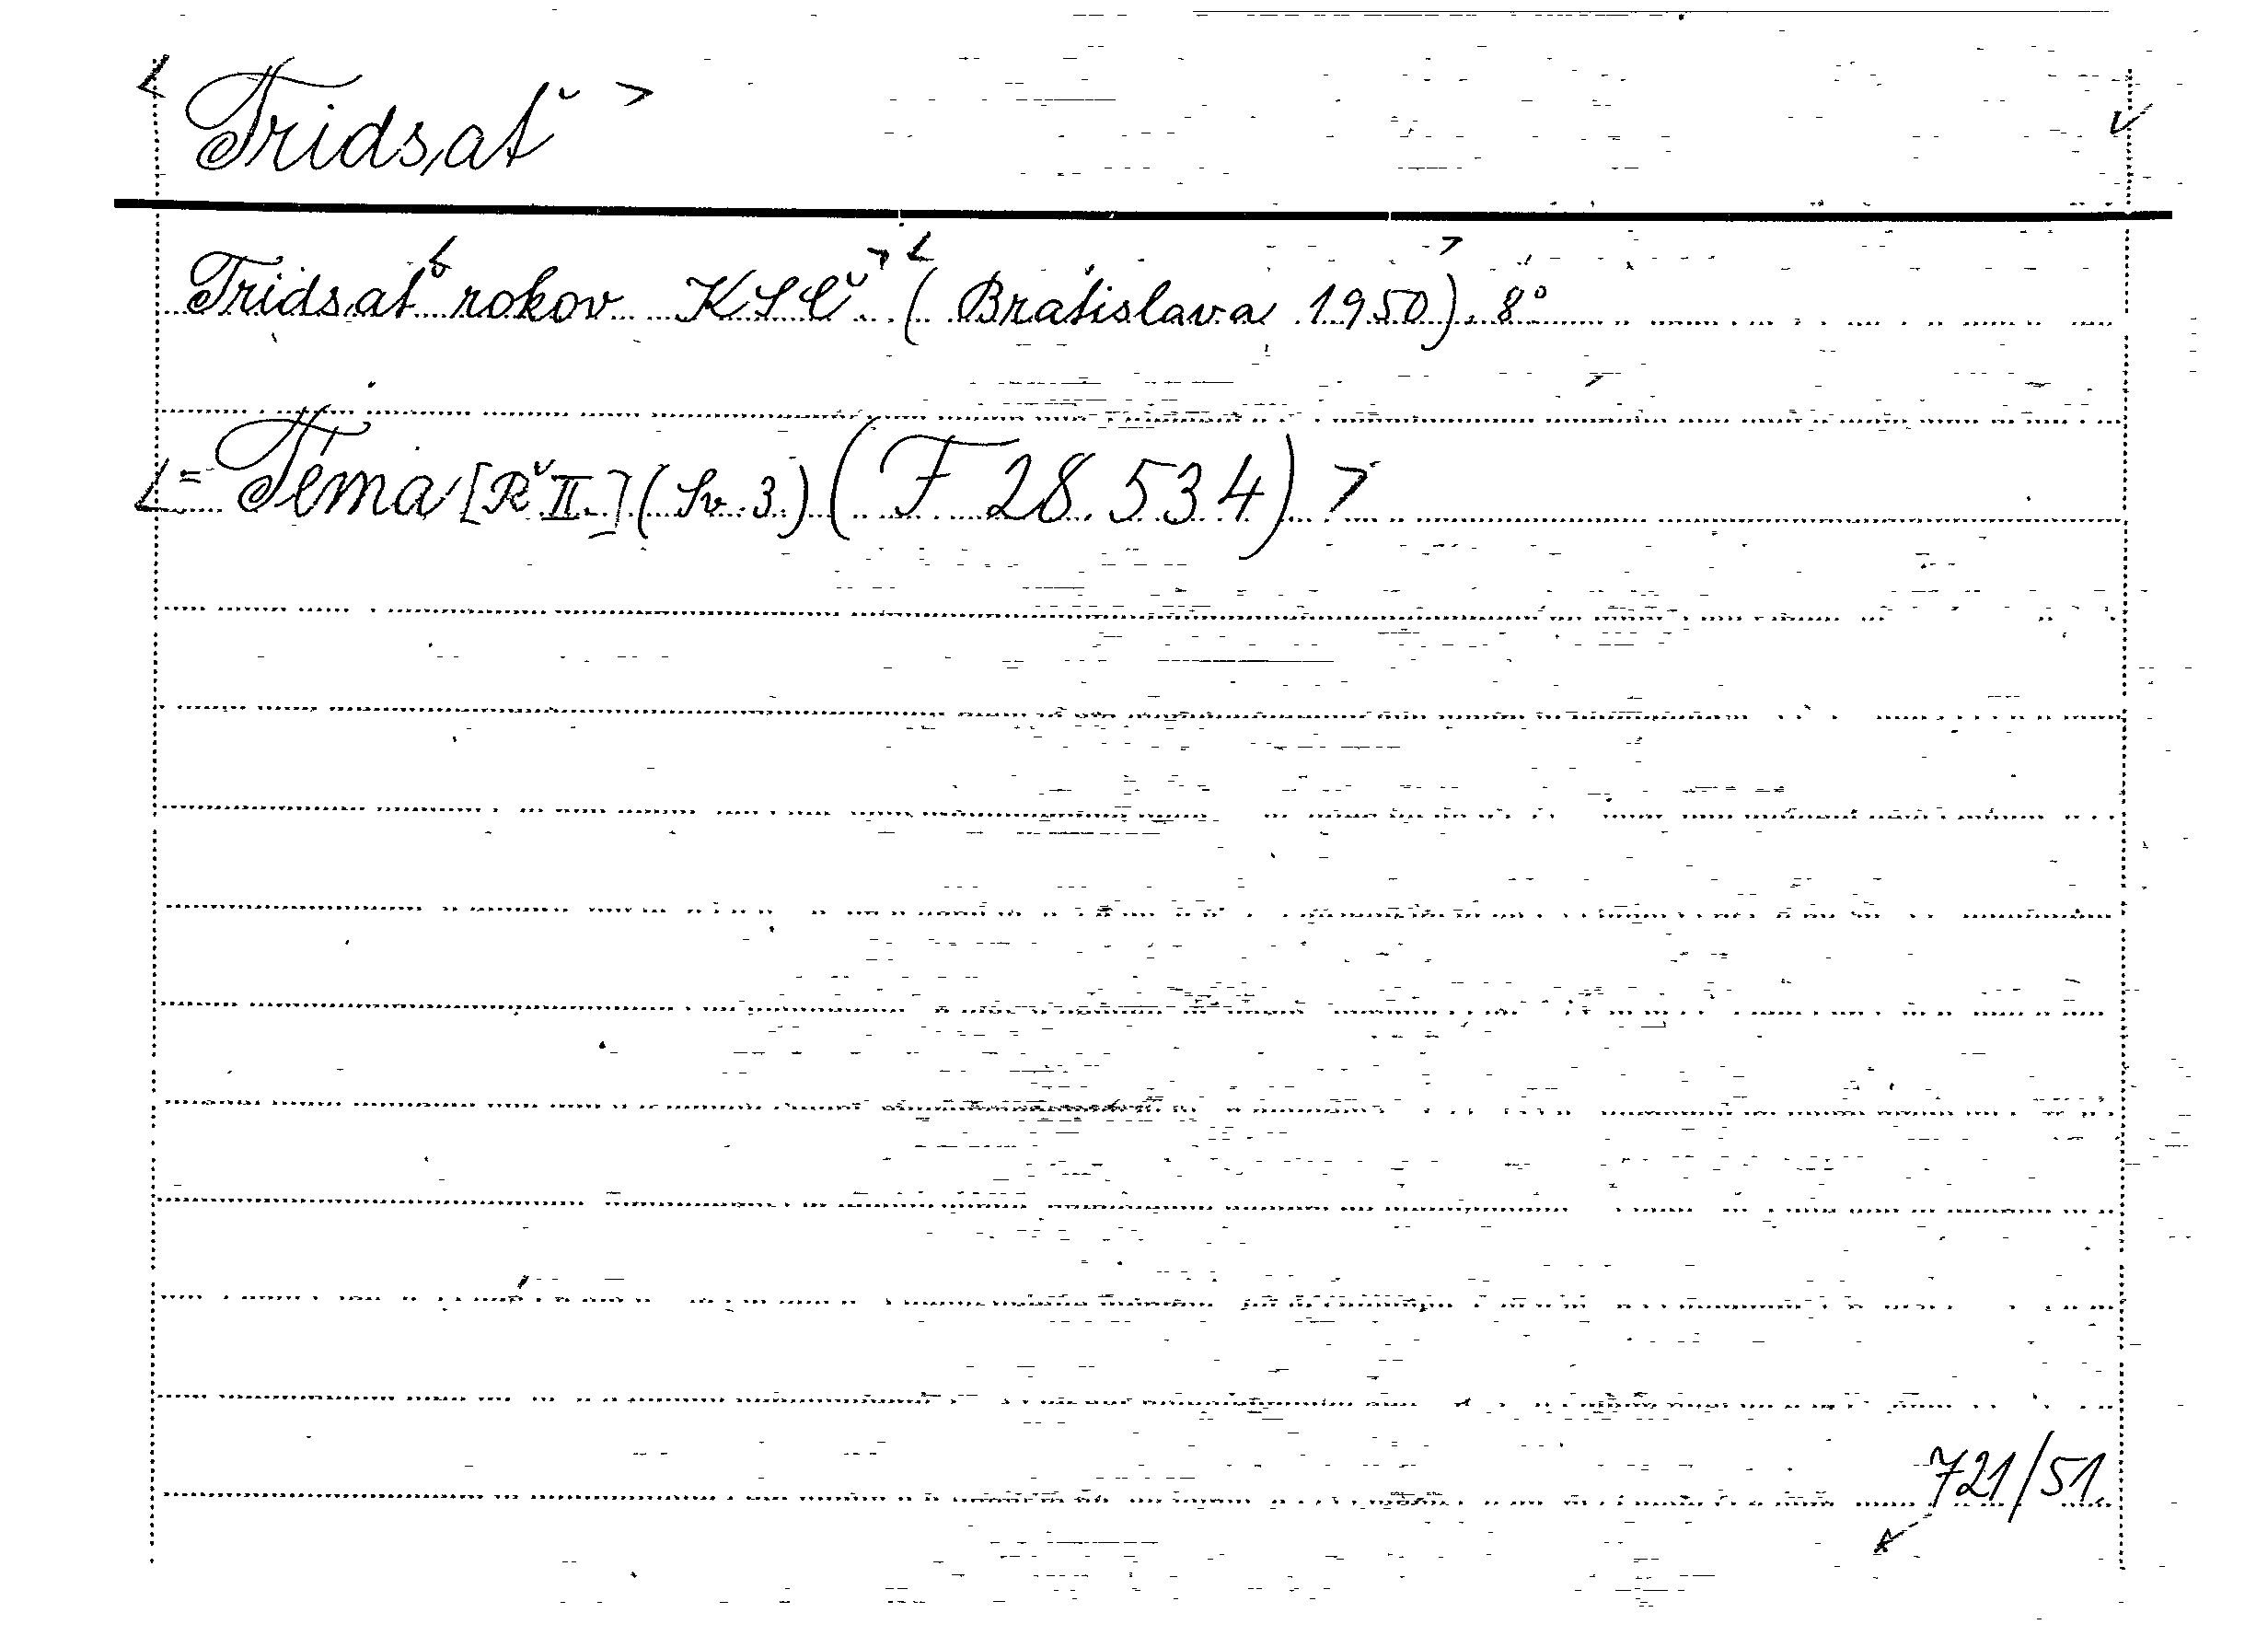 < Tridsať >
Tridsať < rokov KSČ > < (Bratislava 1950) > . 8°
< = Téma [Ř II.] (Sv. 3.) ( F 28.534) >
721/51.